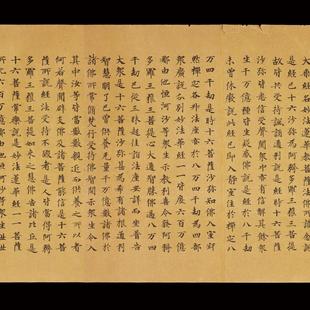 大乘經名妙法蓮華教菩薩法佛所護念說
是經已十六沙彌為阿耨多羅三藐三菩提
故皆共受持諷誦通利說是經時十六菩薩
沙彌皆悉信受聲聞眾中亦有信解其餘眾
生千萬億種皆生疑惑佛說是經於八千劫
未曾休廢說此經已即入靜室住於禪定八
萬四千劫是時十六菩薩沙彌知佛入室寂
然禪定各昇法座亦於八萬四千劫為四部
眾廣說分別妙法華經一一皆度六百萬億
那由他恒河沙等眾生示教利喜令發阿耨
多羅三藐三菩提心大通智勝佛過八萬四
千劫已從三昧起往詣法座安詳而坐普告
大眾是十六菩薩沙彌甚為希有諸根通利
智慧明了已曾供養無量千萬億數諸佛於
諸佛所常修梵行受持佛智開示眾生令入
其中汝等皆當數數親近而供養之所以者
何若聲聞辟支佛及諸菩薩能信是十六菩
薩所說經法受持不毀者是人皆當得阿耨
多羅三藐三菩提如來之慧佛告諸比丘是
十六菩薩常樂說是妙法蓮華經一一菩薩
所化六百萬億那由他恒河沙等眾生世世